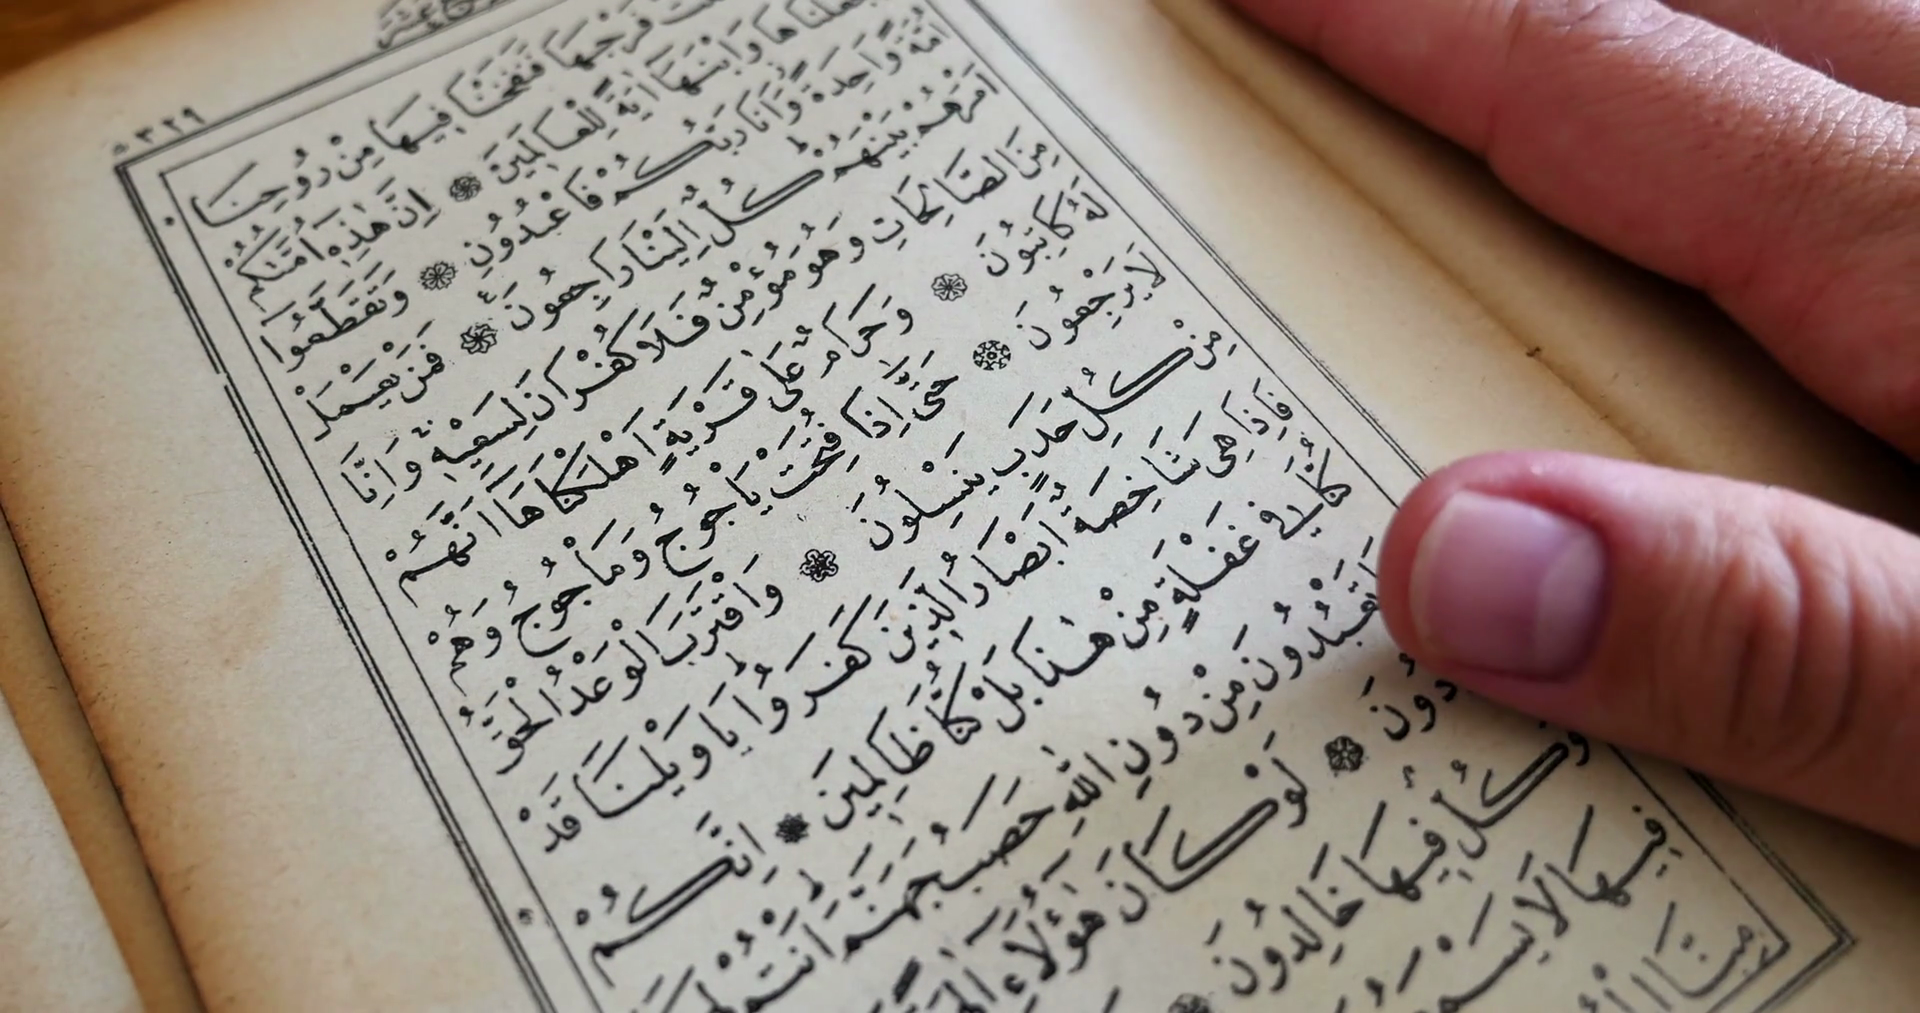 ٣٢٩
فَرْجَهَا فَنَفَخْنَا فِيهَا مِنْ رُوحِنَا
وَابْنَهَا اٰيَةً لِلْعَالَمِينَ ❁ اِنَّ هٰذِهِ اُمَّتُكُمْ
اُمَّةً وَاحِدَةً وَاَنَا رَبُّكُمْ فَاعْبُدُونِ ❁ وَتَقَطَّعُوا
اَمْرَهُمْ بَيْنَهُمْ كُلٌّ اِلَيْنَا رَاجِعُونَ ❁ فَمَنْ يَعْمَلْ
مِنَ الصَّالِحَاتِ وَهُوَ مُؤْمِنٌ فَلَا كُفْرَانَ لِسَعْيِهِ وَاِنَّا
لَهُ كَاتِبُونَ ❁ وَحَرَامٌ عَلٰى قَرْيَةٍ اَهْلَكْنَاهَا اَنَّهُمْ
لَا يَرْجِعُونَ ❁ حَتّٰى اِذَا فُتِحَتْ يَاْجُوجُ وَمَاْجُوجُ وَهُمْ
مِنْ كُلِّ حَدَبٍ يَنْسِلُونَ ❁ وَاقْتَرَبَ الْوَعْدُ الْحَقُّ
فَاِذَا هِيَ شَاخِصَةٌ اَبْصَارُ الَّذِينَ كَفَرُوا يَا وَيْلَنَا قَدْ
كُنَّا فِي غَفْلَةٍ مِنْ هٰذَا بَلْ كُنَّا ظَالِمِينَ ❁ اِنَّكُمْ
تَعْبُدُونَ مِنْ دُونِ اللّٰهِ حَصَبُ جَهَنَّمَ اَنْتُمْ
❁ لَوْ كَانَ هٰؤُلَاءِ
وَكُلٌّ فِيهَا خَالِدُونَ ❁
فِيهَا لَا
مِنَّا